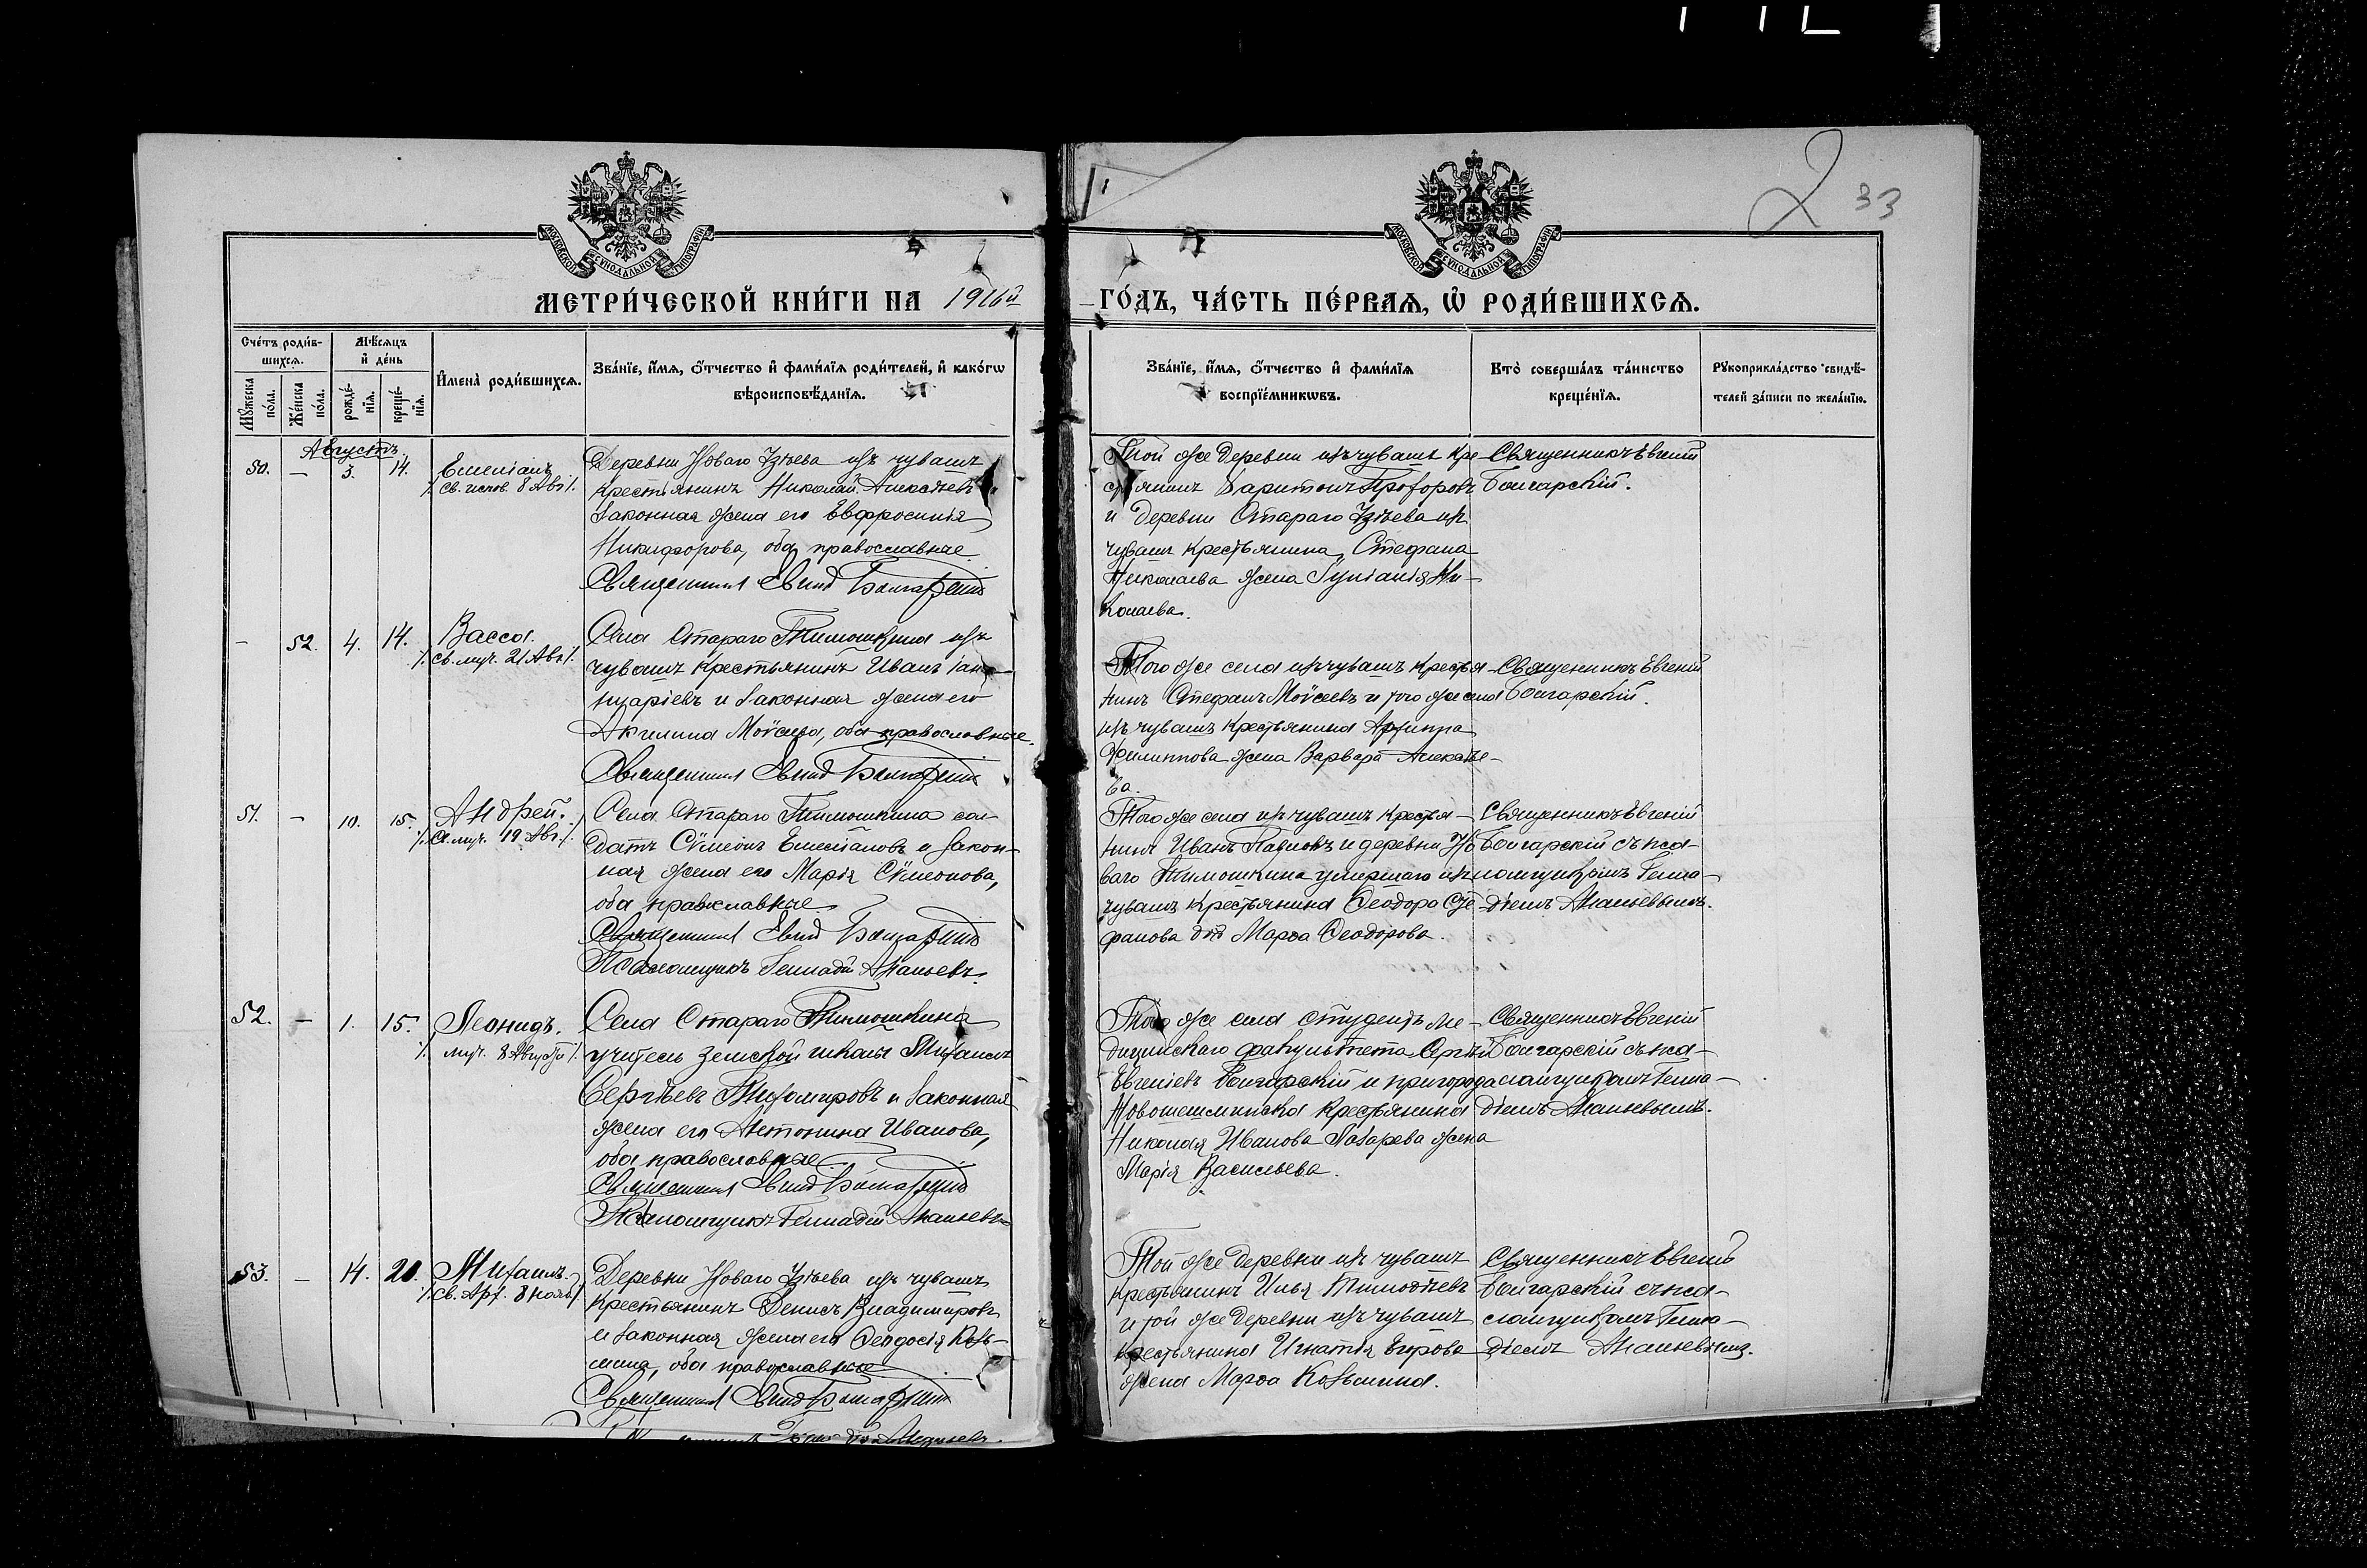 2 33
МОСКОВСКОЙ СѴНОДАЛЬНОЙ ТИПОГРАФІИ
МОСКОВСКОЙ СѴНОДАЛЬНОЙ ТИПОГРАФІИ
МЕТРИ́ЧЕСКОЙ КНИ́ГИ НА 1916й ГО́ДЪ, ЧА́СТЬ ПЕ́РВАѦ, Ѡ҆ РОДИ́ВШИХСѦ.
Сче́тъ роди́в-
шихсѧ.
Мꙋ́жеска по́ла.
Же́нска по́ла.
Мѣ́сѧцъ
и҆ де́нь
рожде́-
нїѧ.
креще́-
нїѧ.
И҆мена̀ роди́вшихсѧ.
Зва́нїе, и҆́мѧ, ѻ҆́тчество и҆ фами́лїѧ роди́телей, и҆ како́гѡ
вѣроисповѣ́данїѧ.
Зва́нїе, и҆́мѧ, ѻ҆́тчество и҆ фами́лїѧ
воспрїе́мникѡвъ.
Кто̀ соверша́лъ та́инство
креще́нїѧ.
Рꙋкоприкла́дство свидѣ́-
телей за́писи по жела́нїю.
Августъ.
50. — 3. 14.
Емеліанъ
св. испов. 8 Авг.
Деревни Новаго Узѣева изъ чувашъ
крестьянинъ Николай Алексѣевъ
законная жена его Евфросинія
Никифорова, оба православные
Священникъ Евгеній Болгарскій
Той же деревни изъ чувашъ кре
стьянинъ Харитонъ Прохоровъ
и деревни Стараго Узѣева изъ
чувашъ крестьянина Стефана
Николаева жена Іуліанія Ни-
колаева.
Священникъ Евгеній
Болгарскій.
— 52. 4. 14.
Васса.
св. муч. 21 Авг.
Села Стараго Тимошкина изъ
чувашъ крестьянинъ Иванъ Іан-
нуаріевъ и законная жена его
Акилина Моѵсеева, оба православные.
Священникъ Евгеній Болгарскій
Того же села изъ чувашъ крестья-
нинъ Стефанъ Моѵсеевъ и того же села
изъ чувашъ крестьянина
Филиппова жена Варвара Алексѣе-
ва.
Священникъ Евгеній
Болгарскій.
51. — 10. 15.
Андрей.
св. муч. 19 Авг.
Села Стараго Тимошкина сол-
датъ Сѵмеонъ Емеліановъ и закон-
ная жена его Марія Сѵмеонова,
оба православные.
Священникъ Евгеній Болгарскій
Псаломщикъ Геннадій Ананьевъ.
Того же села изъ чувашъ крестья-
нинъ Иванъ Павловъ и деревни Но
ваго Тимошкина умершаго изъ
чувашъ крестьянина Ѳеодора Сте-
фанова дочь Марѳа Ѳеодорова.
Священникъ Евгеній
Болгарскій съ пса-
ломщикомъ Генна-
діемъ Ананьевымъ.
52. — 1. 15.
Леонидъ.
муч. 8 Августа
Села Стараго Тимошкина
учитель земской школы Михаилъ
Сергѣевъ Тихомировъ и законная
жена его Антонина Иванова,
оба православные
Священникъ Евгеній Болгарскій
Псаломщикъ Геннадій Ананьевъ
Того же села студентъ ме-
дицинскаго факультета Сергѣй
Евгеніевъ Болгарскій и пригорода
Новошешминска крестьянина
Николая Иванова Лазарева жена
Марія Васильева.
Священникъ Евгеній
Болгарскій съ пса-
ломщикомъ Генна-
діемъ Ананьевымъ.
53. — 14. 20.
Михаилъ.
св. Арх. 8 нояб.
Деревни Новаго Узѣева изъ чувашъ
крестьянинъ Денисъ Владимировъ
и законная жена его Ѳеодосія Козь-
мина, оба православные
Священникъ Евгеній Болгарскій
Той же деревни изъ чувашъ
крестьянинъ Илья Тимоѳѣевъ
и той же деревни изъ чувашъ
крестьянина Игнатія Егорова
жена Марѳа Козьмина.
Священникъ Евгеній
Болгарскій съ пса-
ломщикомъ Генна-
діемъ Ананьевымъ.